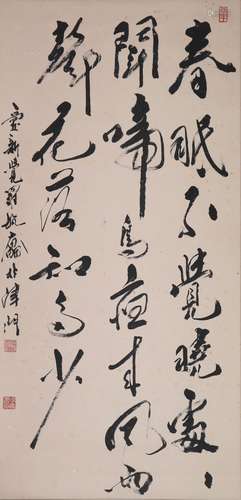 春眠不覺曉處〻
聞啼鳥夜來風雨
聲花落知多少
愛新覺羅毓於津門